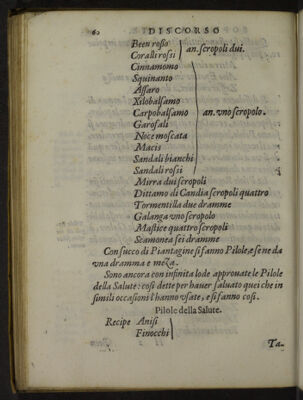 60 DISCORSO
Been rosso
Coralli rossi
an. scropoli dui.
Cinnamomo
Squinanto
Assaro
Xilobalsamo
Carpobalsamo
an. vno scropolo.
Garofali
Noce moscata
Macis
Sandali bianchi
Sandali rossi
Mirra dui scropoli
Dittamo di Candia scropoli quattro
Tormentilla due dramme
Galanga vno scropolo
Mastice quattro scropoli
Scamonea sei dramme
Con succo di Piantagine si fanno Pilole, e se ne da
vna dramma e meza.
Sono ancora con infinita lode approuate le Pilole
della Salute: così dette per hauer saluato quei che in
simili occasioni l'hanno vsate, e si fanno così.
Pilole della Salute.
Recipe Anisi
Finocchi
Ta-